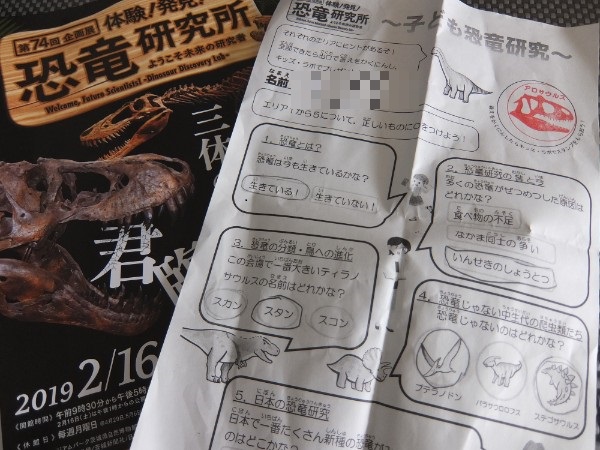 第74回 企画展
体験!発見!
恐竜研究所
ようこそ未来の研究者
Welcome, Future Scientists! -Dinosaur Discovery Lab-
三体
君臨
2019 2/16
《開館時間》午前9時30分から午後5時
《休館日》毎週月曜日
恐竜研究所
〜子ども恐竜研究〜
それぞれのエリアにヒントがあるぞ!
なまえ
名前
エリア1から5について、正しいものに○をつけよう!
アロサウルス
1. 恐竜とは?
恐竜は今も生きているかな?
生きている!
生きていない!
2. 恐竜研究の昔と今
多くの恐竜がぜつめつした原因は
どれかな?
食べ物の不足
なかま同士の争い
いんせきのしょうとつ
3. 恐竜の分類・鳥への進化
この会場で一番大きいティラノ
サウルスの名前はどれかな?
スカン
スタン
スコン
4. 恐竜じゃない中生代の爬虫類たち
恐竜じゃないのはどれかな?
プテラノドン
パラサウロロフス
ステゴサウルス
5. 日本の恐竜研究
日本で一番たくさん新種の恐竜が
のはどこかな?